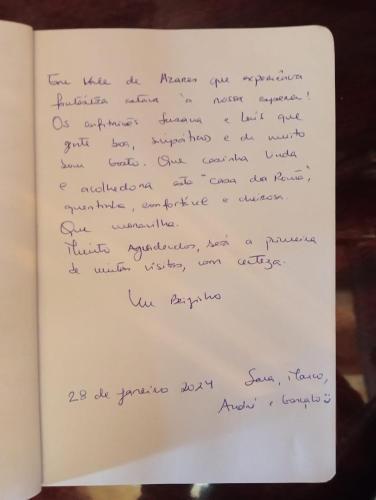 Em Vale de Azares que experiência
fantástica estava à nossa espera!
Os anfitriões Susana e Luís que
gente boa, simpática e de muito
bom gosto. Que casinha linda
e acolhedora esta "Casa da Romã",
quentinha, confortável e cheirosa.
Que maravilha.
Muito Agradecidos, será a primeira
de muitas visitas, com certeza.
Um Beijinho
28 de janeiro 2024 Sara, Marco,
André e Gonçalo